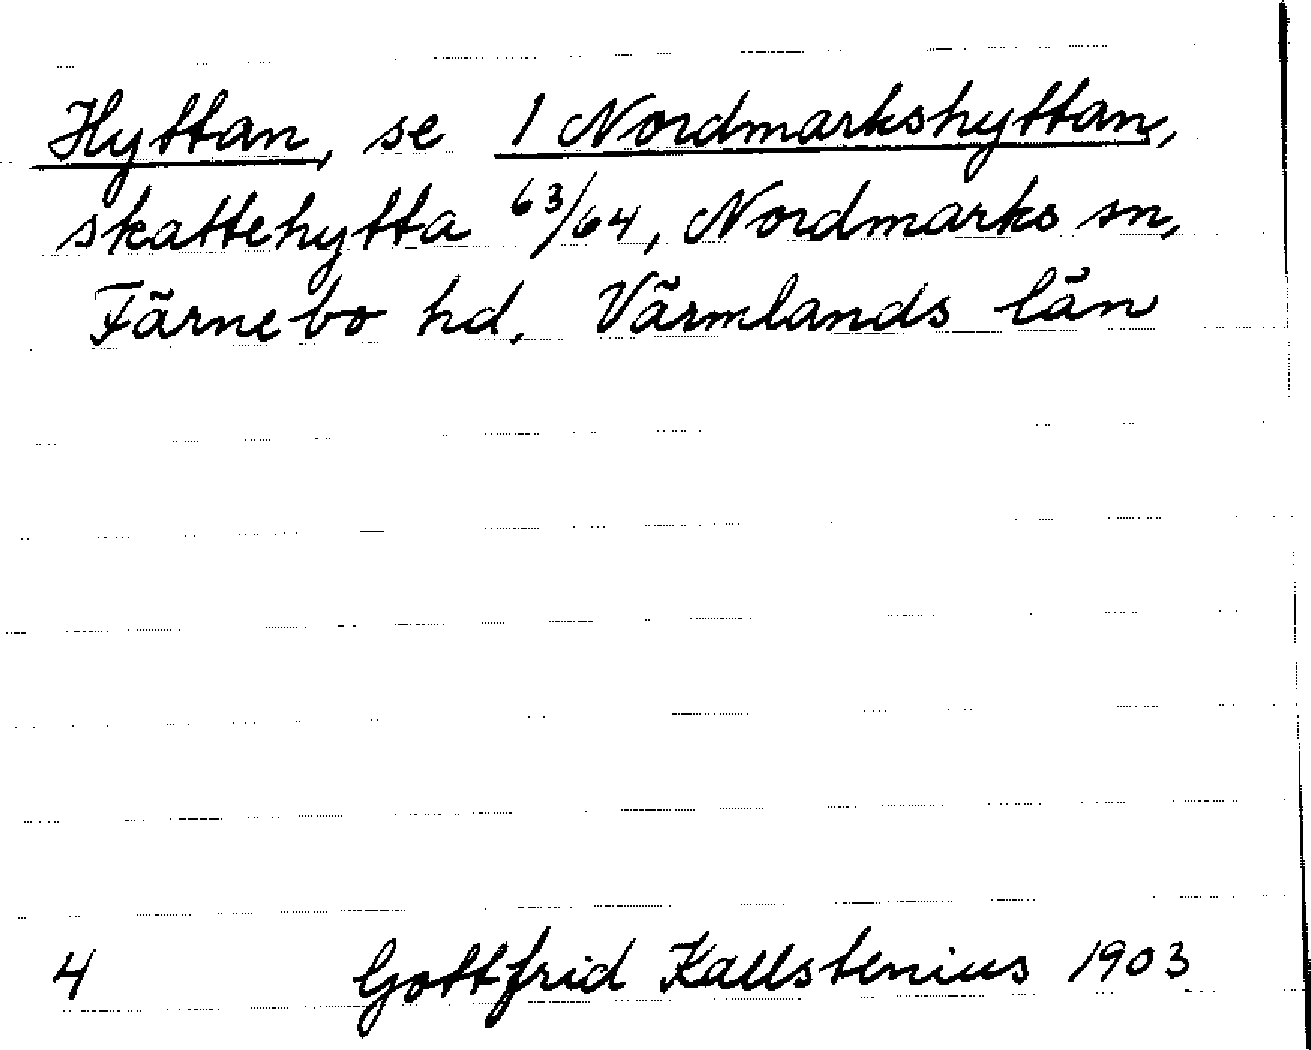 Hyttan, se 1 Nordmarkshyttan,
skattehytta 63/64, Nordmarks sn,
Färnebo hd. Värmlands län
4 Gottfrid Kallstenius 1903